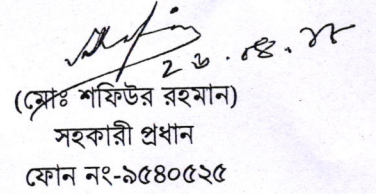 ২৬.০৪.১৮
(মোঃ শফিউর রহমান)
সহকারী প্রধান
ফোন নং-৯৫৪০৫২৫